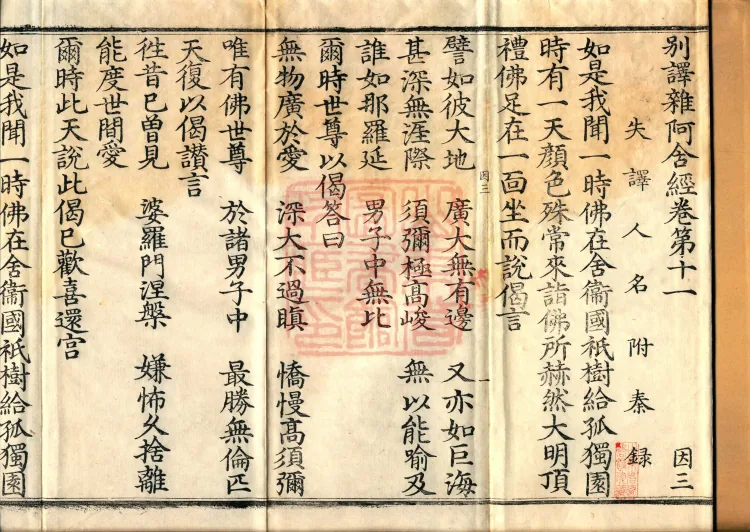 別譯雜阿含經卷第十一 因三
失譯人名附秦録
如是我聞一時佛在舍衞國祇樹給孤獨園
時有一天顔色殊常來詣佛所赫然大明頂
禮佛足在一面坐而說偈言
因三 一
譬如彼大地 廣大無有邊 又亦如巨海
甚深無涯際 須彌極高峻 無以能喻及
誰如那羅延 男子中無比
爾時世尊以偈答曰
無物廣於愛 深大不過瞋 憍慢高須彌
唯有佛世尊 於諸男子中 最勝無倫匹
天復以偈讃言
徃昔已曾見 婆羅門涅槃 嫌怖久捨離
能度世間愛
爾時此天說此偈已歡喜還宫
如是我聞一時佛在舍衞國祇樹給孤獨園